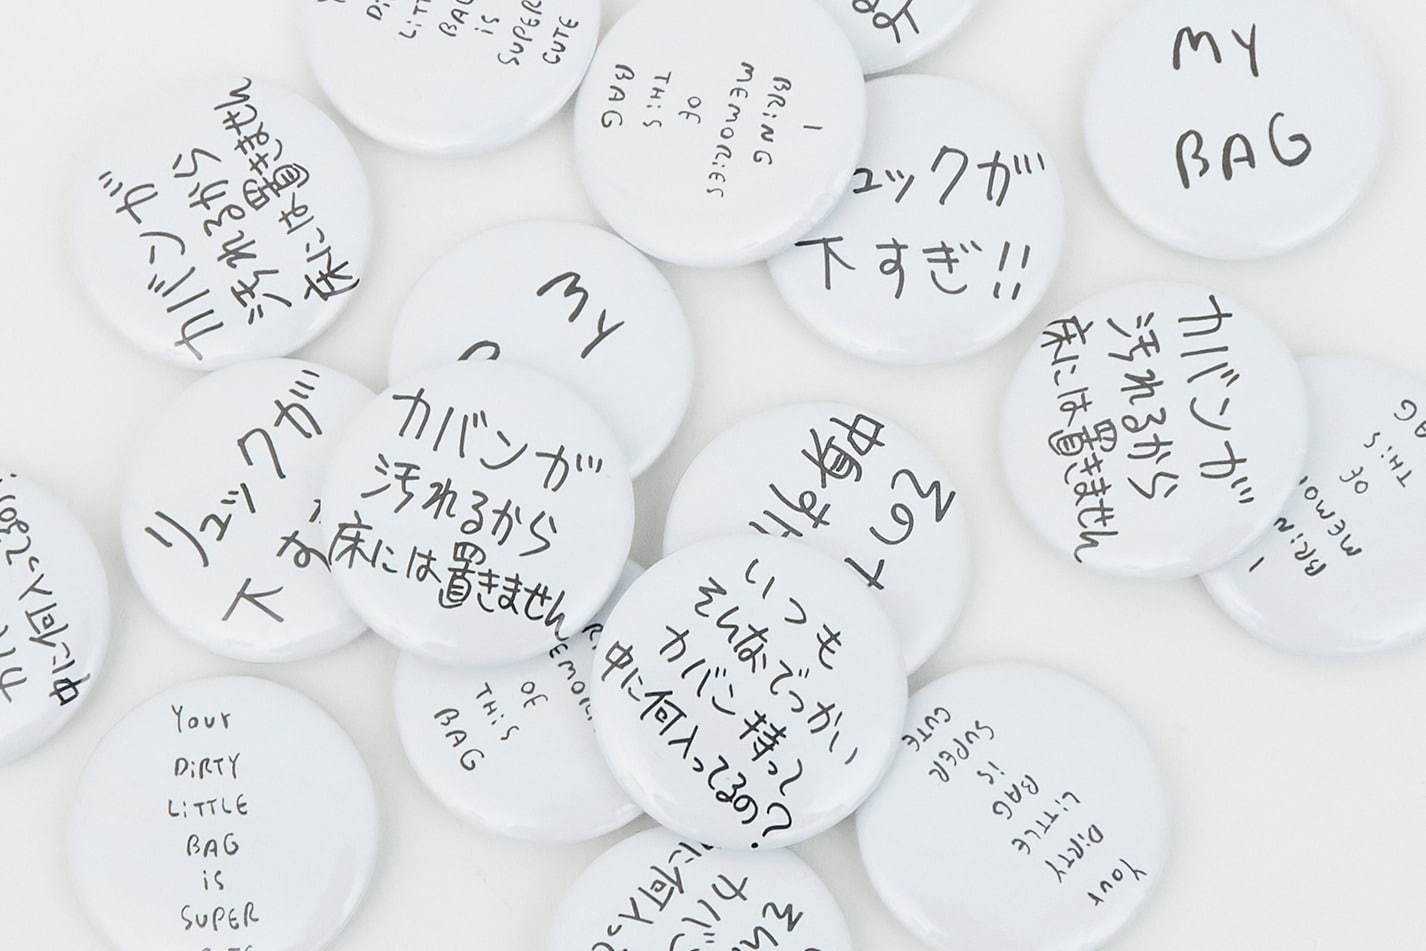 DI
LITT
BAG
is
SUPER
CUTE
I
BRING
MEMORIES
OF
THIS
BAG
MY
BAG
カバンが
汚れるから
床には置きません
ュックが
下すぎ!!
MY
カバンが
汚れるから
床には置きません
リュックが
下す
カバンが
汚れるから
床には置きません
その
中身
I
BRIN
MEMO
OF
THIS
AG
いつも
そんなでっかい
カバン持って
中に何入ってるの?
中に何入ってるの
MEMOR
OF
THIS
BAG
Your
DIRTY
LITTLE
BAG
is
SUPER
Your
DIRTY
LITTLE
BAG
is
SUPER
CUTE
そん
カバ
に何入っ